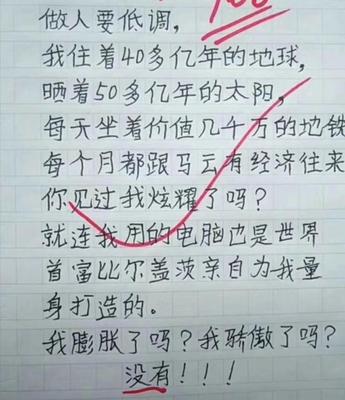 100
做人要低调,
我住着40多亿年的地球,
晒着50多亿年的太阳,
每天坐着价值几千万的地铁
每个月都跟马云有经济往来
你见过我炫耀了吗?
就连我用的电脑也是世界
首富比尔盖茨亲自为我量
身打造的。
我膨胀了吗?我骄傲了吗?
没有!!!